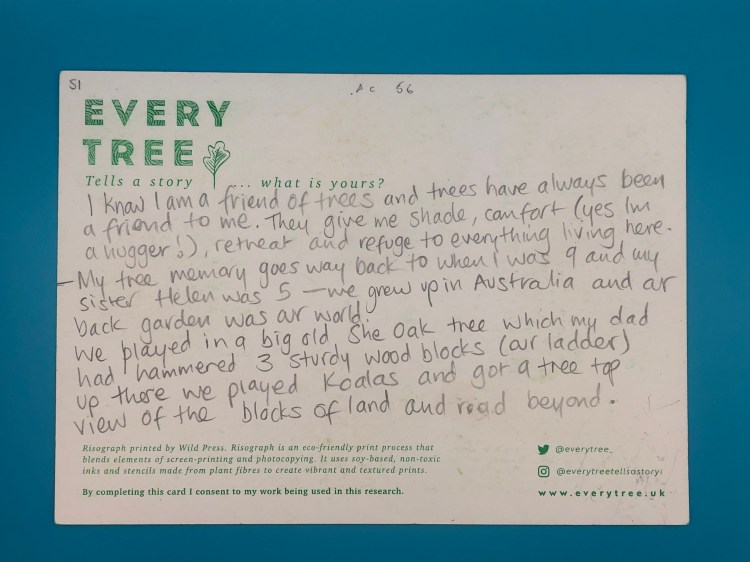 S1
AC 56
EVERY
TREE
Tells a story ... what is yours?
I know I am a friend of trees and trees have always been
a friend to me. They give me shade, comfort (yes Im
a hugger!), retreat and refuge to everything living here.
– My tree memory goes way back to when I was 9 and my
sister Helen was 5 – we grew up in Australia and our
back garden was our world.
We played in a big old She Oak tree which my dad
had hammered 3 sturdy wood blocks (our ladder)
up there we played Koalas and got a tree top
view of the blocks of land and road beyond.
Risograph printed by Wild Press. Risograph is an eco-friendly print process that
blends elements of screen-printing and photocopying. It uses soy-based, non-toxic
inks and stencils made from plant fibres to create vibrant and textured prints.
By completing this card I consent to my work being used in this research.
@everytree_
@everytreetellsastory1
www.everytree.uk